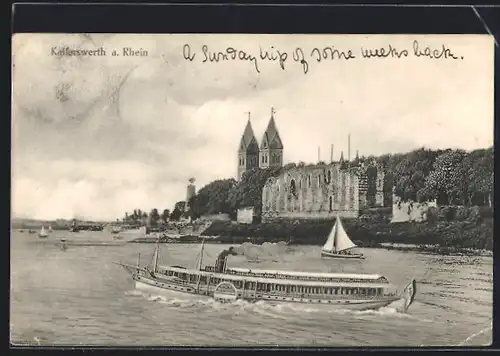 Kaiserswerth a. Rhein
a Sunday trip of some weeks back.